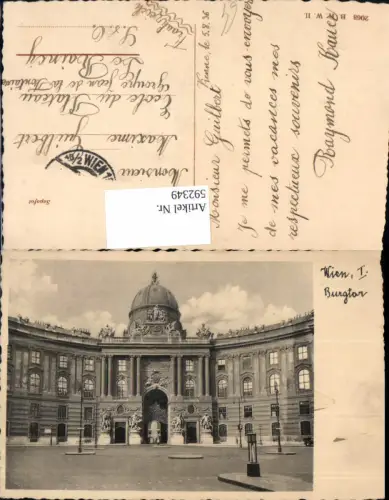 2068 B. W. H.
Monsieur Guilbert
Vienne, le 5.8.36
Je me permets de vous envoyer
de mes vacances mes
respectueux souvenirs
Raymond
Monsieur
Maxime Guilbert
Ecole du Plateau
Groupe Jean de la Fontaine
Le Raincy
S. & O.
Frankreich
WIEN
Artikel Nr.
592349
Wien, I.
Burgtor